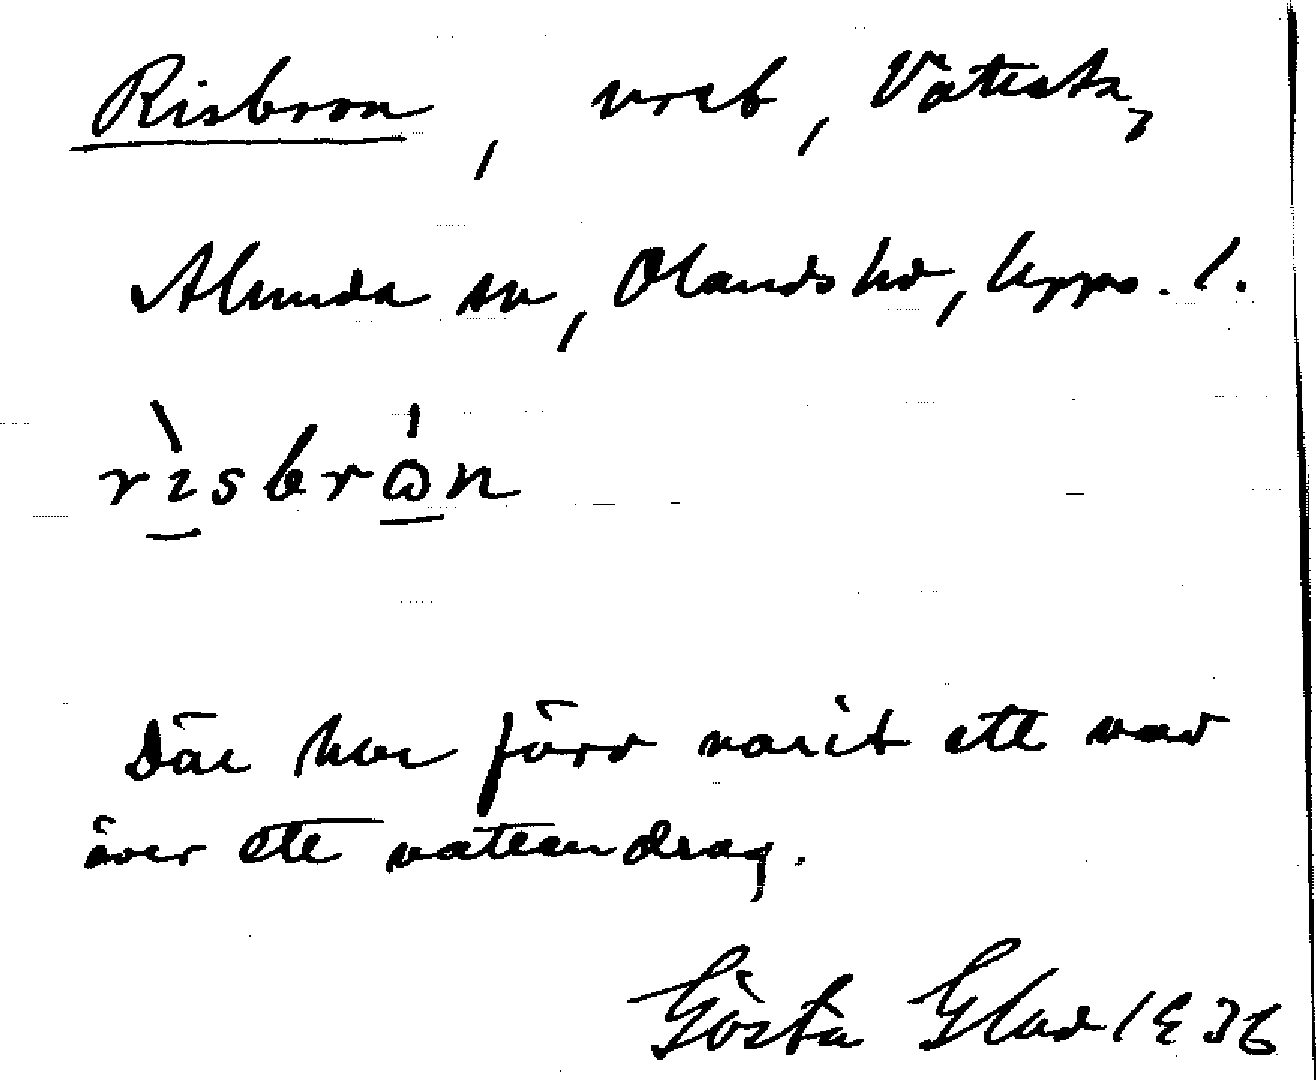 Risbron, vret, Väsesta,
Alunda sn, Olands hd, Upps. l.
rìsbrὼn
Där har förr varit ett vad
över ett vattendrag.
Gösta Glad 1936